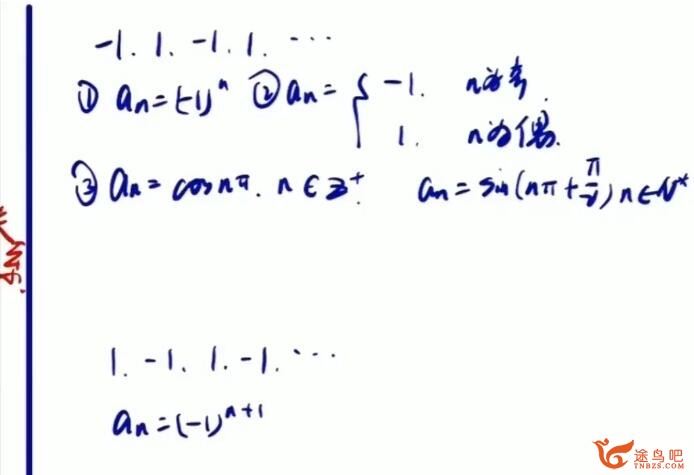 -1. 1. -1. 1. ...
① aₙ=(-1)ⁿ ② aₙ= { -1. n为奇.
1. n为偶.
③ aₙ=cos nπ. n∈Z⁺. aₙ=sin(nπ+π/2) n∈N*
1. -1. 1. -1. ...
aₙ=(-1)ⁿ⁺¹
途鸟吧
TNBZS.COM